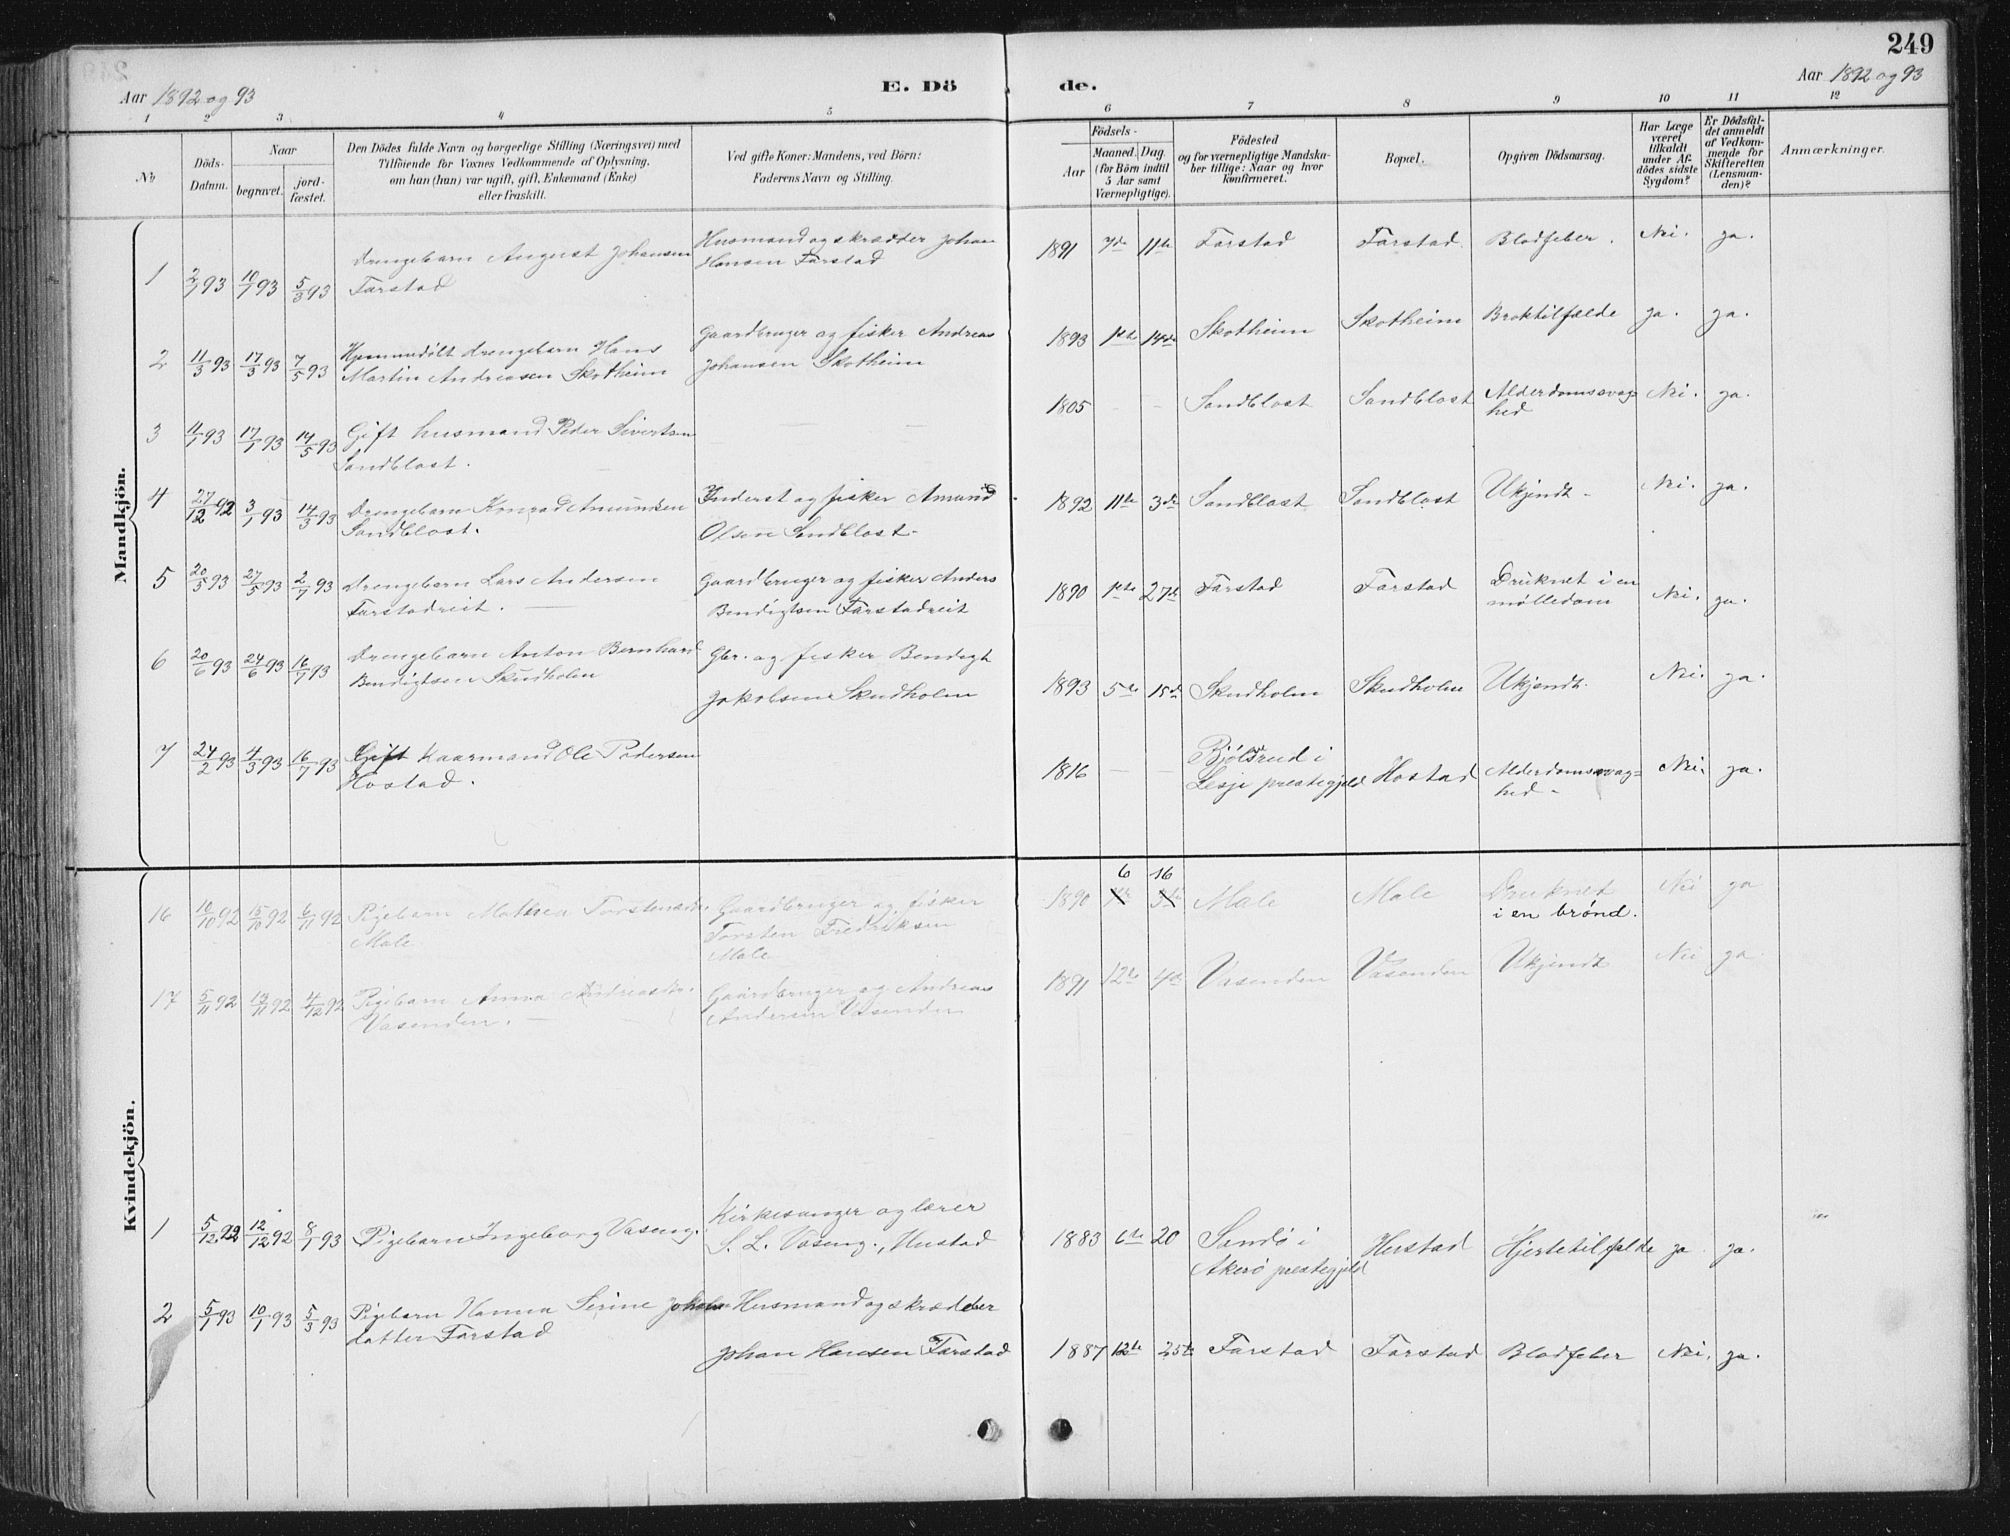 249
Aar 1892 og 93
E. Dö
de.
Aar 1892 og 93
1 2 3 4 5 6 7 8 9 10 11 12
No
Döds-
Datum.
Naar
begravet.
jord-
fæstet.
Den Dödes fulde Navn og borgerlige Stilling (Næringsvei) med
Tilföiende for Voxnes Vedkommende af Oplysning,
om han (hun) var ugift, gift, Enkemand (Enke)
eller fraskilt.
Ved gifte Koner: Mandens, ved Börn:
Faderens Navn og Stilling.
Födsels-
Aar
Maaned. Dag.
(for Börn indtil
5 Aar samt
Værnepligtige).
Födested
og for værnepligtige Mandska-
ber tillige: Naar og hvor
konfirmeret.
Bopæl.
Opgiven Dödsaarsag.
Har Læge
været
tilkaldt
under Af-
dödes sidste
Sygdom?
Er Dödsfal-
det anmeldt
af Vedkom-
mende for
Skifteretten
(Lensman-
den)?
Anmærkninger.
Mandkjön.
1 2/1 93 10/1 93 5/3 93 Drengebarn August Johansen
Farstad
Husmand og skrædder Johan
Hansen Farstad
1891 7de 11te Farstad Farstad Blodfeber. Nei. ja.
2 11/3 93 17/3 93 7/5 93 Hjemmedöbt drengebarn Hans
Martin Andreasen Skotheim
Gaardbruger og fisker Andreas
Johansen Skotheim
1893 1ste 14de Skotheim Skotheim Broktilfælde ja. ja.
3 11/1 93 17/1 93 14/5 93 Gift husmand Peder Sivertsen
Sandblost.
1805 — — Sandblost Sandblost Alderdomssvag=
hed Nei. ja.
4 27/12 92 3/1 93 14/3 93 Drengebarn Konrad Amundsen
Sandblost.
Inderst og fisker Amund
Olsen Sandblost
1892 11te 3de Sandblost Sandblost Ukjendt Nei. ja.
5 20/5 93 27/5 93 2/7 93 Drengebarn Lars Andersen
Farstadreit.
Gaardbruger og fisker Anders
Bendigtsen Farstadreit
1890 1ste 27de Farstad Farstad Druknet i en
mølledam Nei. ja.
6 20/6 93 24/6 93 16/7 93 Drengebarn Anton Bernhard
Bendigtsen Skudholm
Gbr. og fisker Bendigt
Jakobsen Skudholm
1893 5te 15de Skudholm Skudholm Ukjendt. Nei. ja.
7 24/2 93 4/3 93 16/7 93 Gift Kaarmand Ole Pedersen
Hostad.
1816 — — Bjölsrud i
Lesje prestegjeld Hostad Alderdomssvag=
hed Nei. ja.
Kvindekjön.
16 10/10 92 15/10 92 6/11 92 Pigebarn Mathea Torstensdtr.
Male
Gaardbruger og fisker
Torsten Fredriksen
Male
6 16
1890 Male Male Druknet
i en brønd. Nei ja
17 5/11 92 12/11 92 4/12 92 Pigebarn Anna Andreasdtr.
Vasenden.
Gaardbruger og Andreas
Andersen Vasenden
1891 12te 4de Vasenden Vasenden Ukjendt Nei ja
1 5/12 92 12/12 92 8/1 93 Pigebarn Ingeborg Vaseng.
Kirkesanger og lærer
S. L. Vaseng., Hustad
1883 6te 20 Sandö i
Akerö prestegjeld Hustad Hjertetilfælde ja ja.
2 5/1 93 10/1 93 5/3 93 Pigebarn Hanna Serine Johans
datter Farstad
Husmand og skrædder
Johan Hansen Farstad
1887 12te 25de Farstad Farstad Blodfeber Nei. ja.